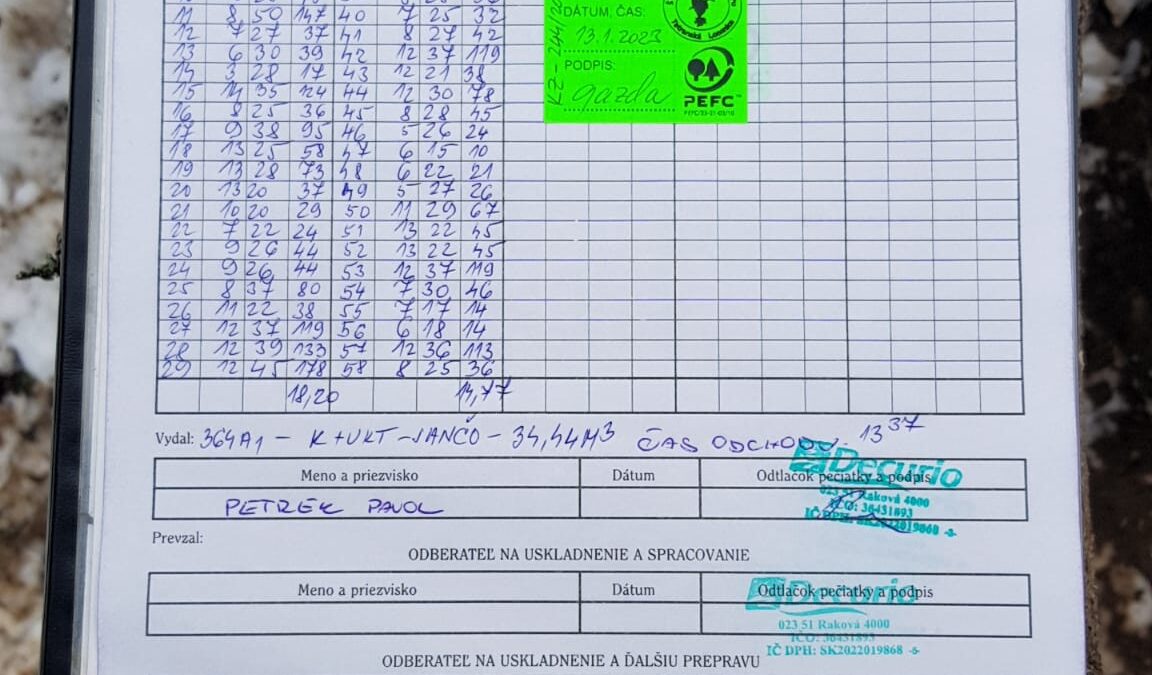 11 8 50 147 40 7 25 32
12 7 27 37 41 8 27 42
13 6 30 39 42 12 37 119
14 3 28 17 43 12 21 38
15 14 35 124 44 12 30 78
16 8 25 36 45 8 28 45
17 9 38 95 46 5 26 24
18 13 25 58 47 6 15 10
19 13 28 73 48 6 22 21
20 13 20 37 49 5 27 26
21 10 20 29 50 11 29 67
22 7 22 24 51 13 22 45
23 9 26 44 52 13 22 45
24 9 26 44 53 12 37 119
25 8 37 80 54 7 30 46
26 11 22 38 55 7 17 14
27 12 37 119 56 6 18 14
28 12 39 133 57 12 36 113
29 12 45 178 58 8 25 36
18,20 14,77
DÁTUM, ČAS:
13.1.2023
PODPIS:
gazda
PEFC
Vydal: 364A1 - K+UKT - JANČO - 34,44M3 ČAS ODCHODU. 13 37
Meno a priezvisko Dátum Odtlačok pečiatky a podpis
PETREK PAVOL
Decurio
023 51 Raková 4000
IČO: 36431893
IČ DPH: SK2022019868 -8-
Prevzal:
ODBERATEĽ NA USKLADNENIE A SPRACOVANIE
Meno a priezvisko Dátum Odtlačok pečiatky a podpis
Decurio
023 51 Raková 4000
IČO: 36431893
IČ DPH: SK2022019868 -8-
ODBERATEĽ NA USKLADNENIE A ĎALŠIU PREPRAVU